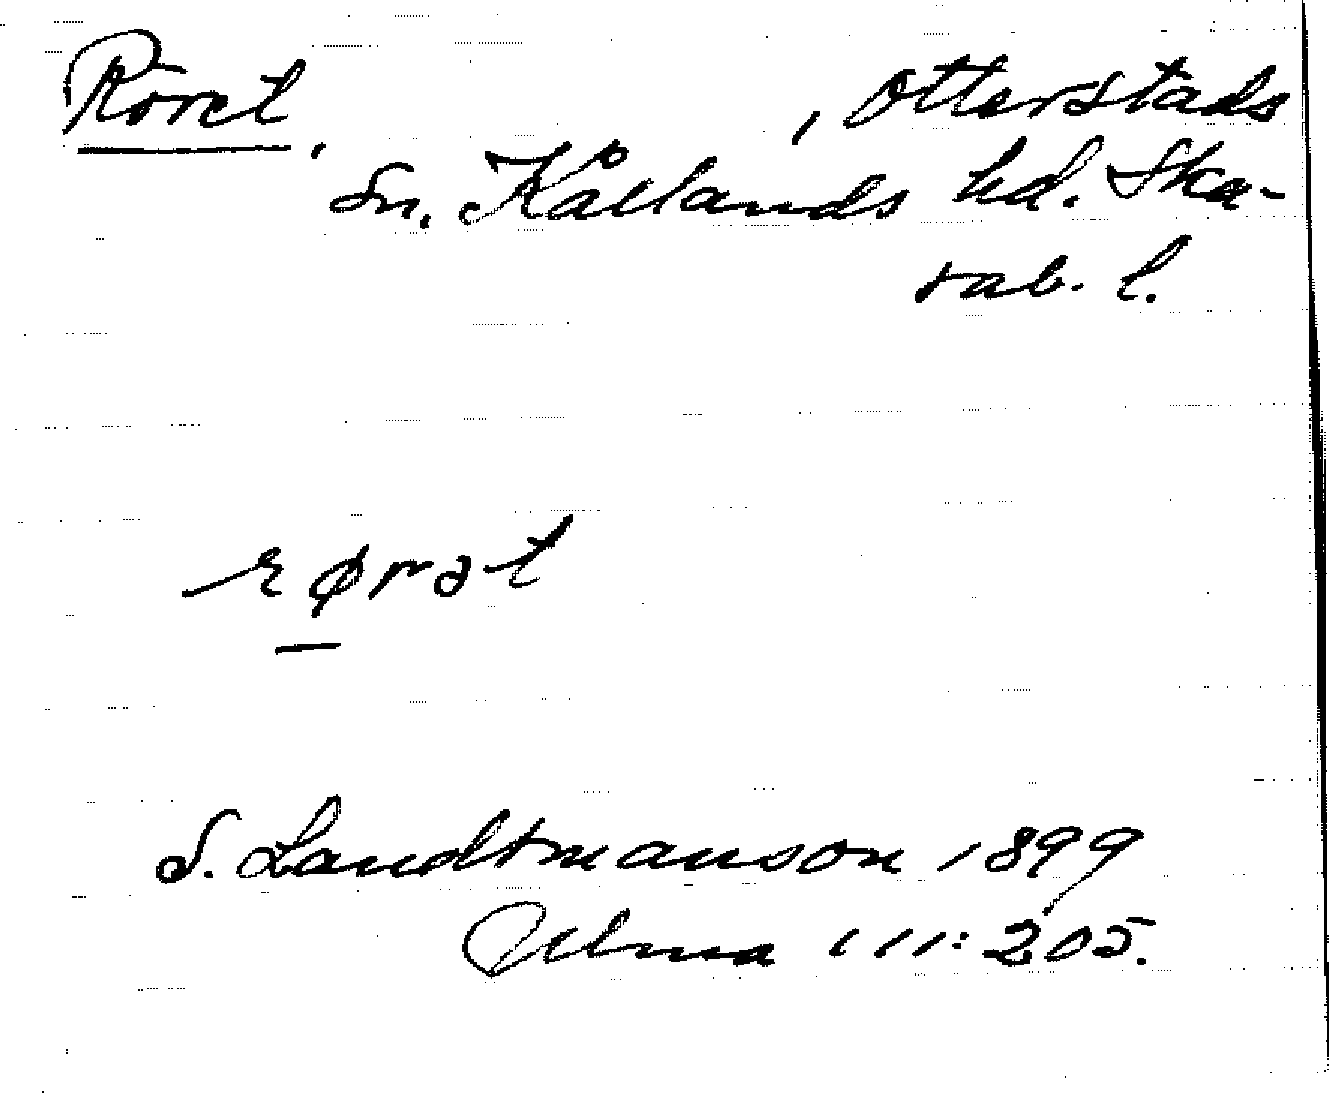 Röret, , Otterstads
Sn. Kållands hd. Ska-
rab. l.
røret
S. Landtmanson 1899
Ulma 111:205.